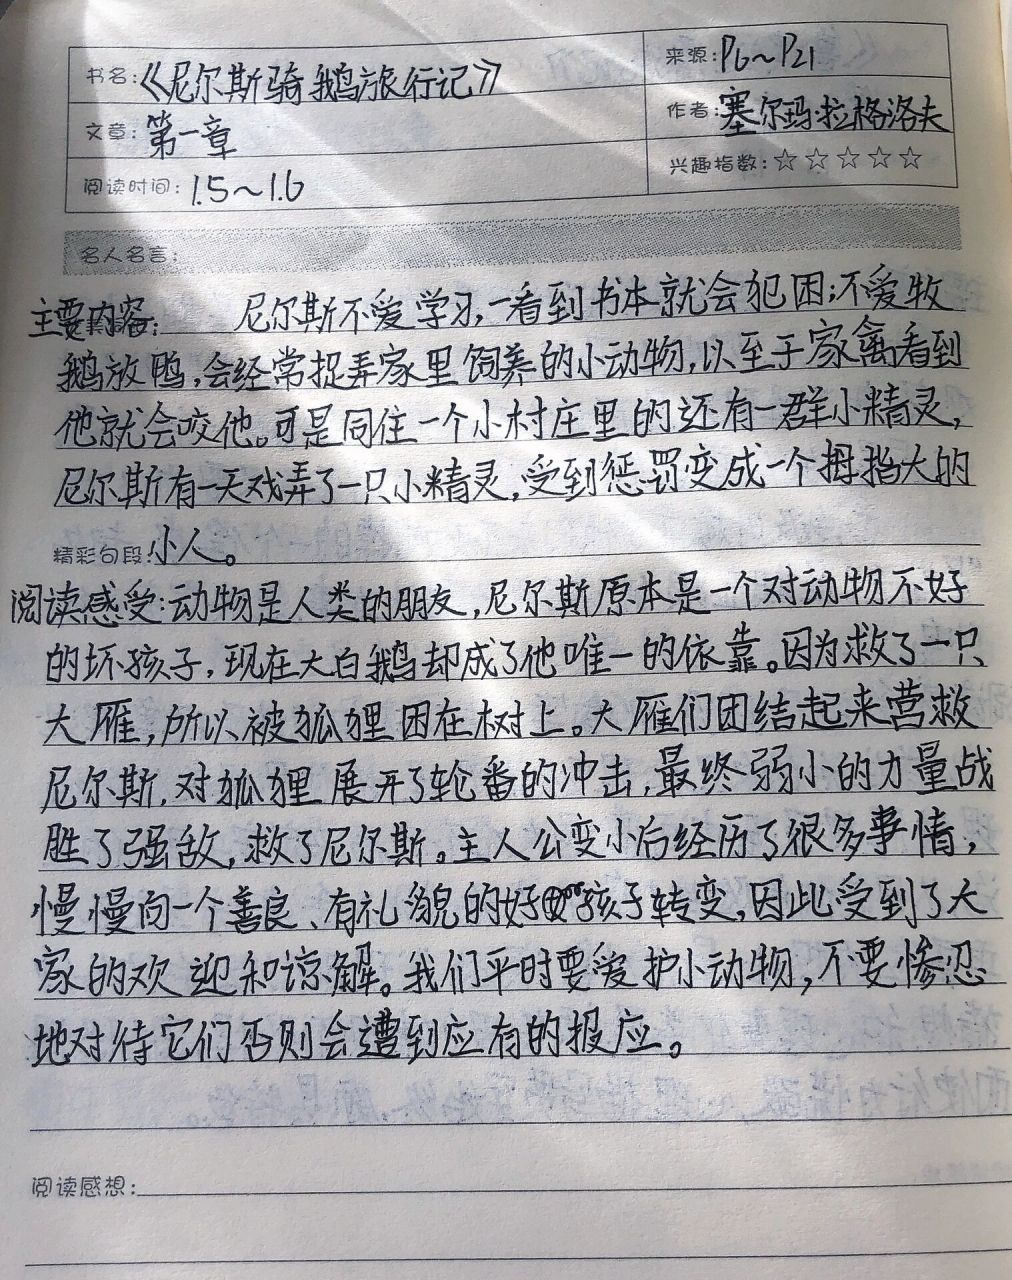 书名:《尼尔斯骑鹅旅行记》
来源:P6~P21
文章:第一章
作者:塞尔玛·拉格洛夫
阅读时间:1.5~1.6
兴趣指数:☆☆☆☆☆
名人名言:
主要内容: 尼尔斯不爱学习,一看到书本就会犯困;不爱牧
鹅放鸭,会经常捉弄家里饲养的小动物,以至于家禽看到
他就会咬他。可是同住一个小村庄里的还有一群小精灵,
尼尔斯有一天戏弄了一只小精灵,受到惩罚变成一个拇指大的
精彩句段:小人。
阅读感受:动物是人类的朋友,尼尔斯原本是一个对动物不好
的坏孩子,现在大白鹅却成了他唯一的依靠。因为救了一只
大雁,所以被狐狸困在树上。大雁们团结起来营救
尼尔斯,对狐狸展开了轮番的冲击,最终弱小的力量战
胜了强敌,救了尼尔斯。主人公变小后经历了很多事情,
慢慢向一个善良、有礼貌的好孩子转变,因此受到了大
家的欢迎和谅解。我们平时要爱护小动物,不要惨忍
地对待它们否则会遭到应有的报应。
阅读感想: